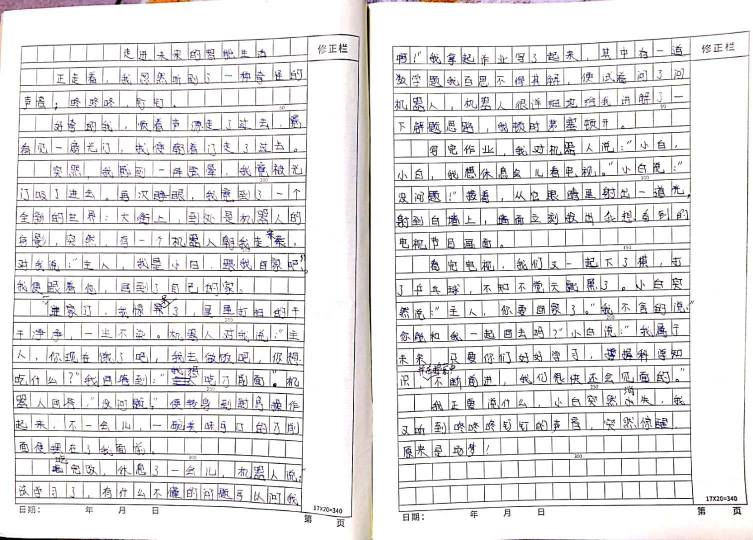 走进未来的智能生活
修正栏
正走着，我忽然听到了一种奇怪的
声音，咚咚咚，钉钉。
好奇的我，顺着声源走了过去，
看见一扇光门，我便朝着门走了过去。
突然，我感到一阵，我被光
门吸了进去。再次睁眼，我看到了一个
全新的世界：大街上，到处是机器人的
身影，突然，有一个机器人朝我走来，
对我说：“主人，我是小白，跟我回家吧！”
我便跟着他，回到了自己的家。
进家门，我惊呆了，屋里打扫的干
干净净，一尘不染。机器人对我说：“主
人，你现在饿了吧，我去做饭吧，你想
吃什么？”我回答到：“我想吃刀削面。”机
器人回答：“没问题。”便转身到厨房操作
起来，不一会儿，一碗美味可口的刀削
面便摆在了我面前。
吃完饭，休息了一会儿，机器人说：“
该学习了，有什么不懂的问题可以问我
日期： 年 月 日
第 页
修正栏
啊！”我拿起作业写了起来，其中有一道
数学题我百思不得其解，便试着问了问
机器人，机器人很详细地给我讲解了一
下解题思路，我顿时茅塞顿开。
写完作业，我对机器人说：“小白，
小白，我想休息会儿看电视。”小白说：“
没问题！”接着，从它眼睛里射出一道光，
射到白墙上，墙面立刻放出你想看到的
电视节目画面。
看完电视，我们又一起下了棋，打
了乒乓球，不知不觉天就黑了。小白突
然说：“主人，你要回家了。”我不舍的说：“
你能和我一起回去吗？”小白说：“我属于
未来，只要你们好好学习，掌握科学知
识，不断前进，我们很快还会见面的。”
我正要说什么，小白突然消失，我
又听到咚咚咚钉钉的声音，突然惊醒，
原来是场梦！
17X20=340
日期： 年 月 日
第 页